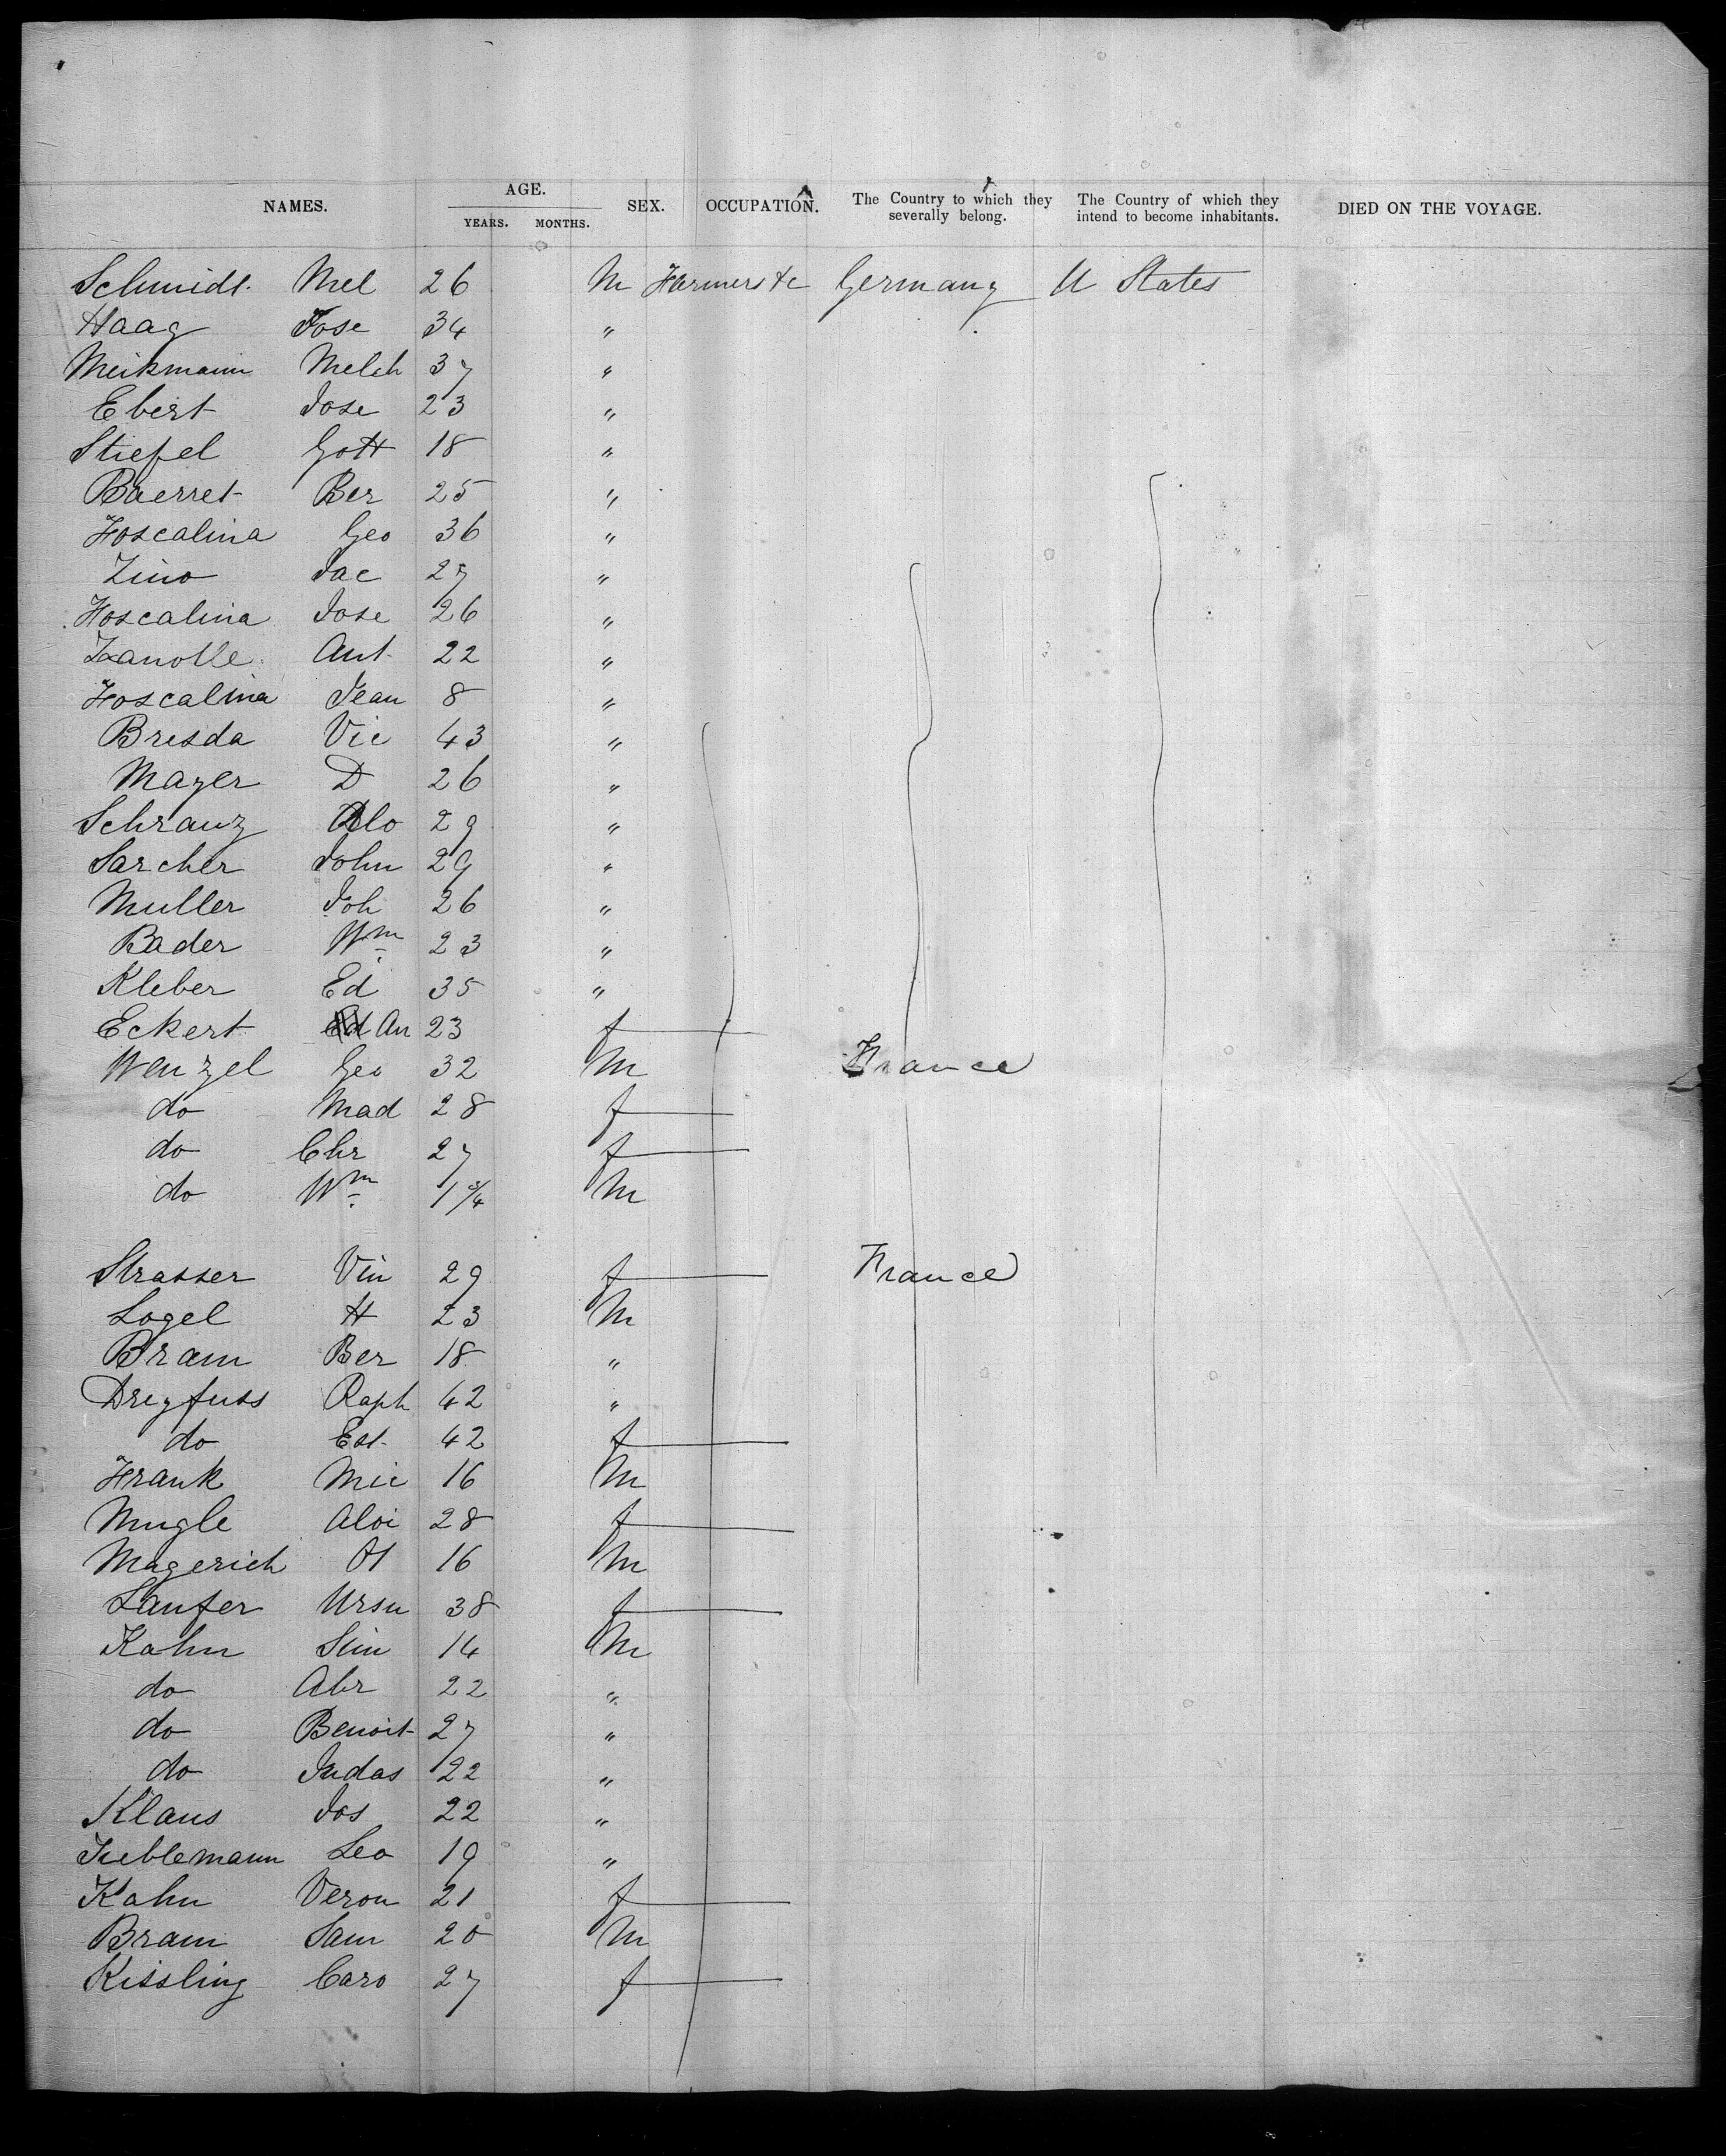 NAMES. AGE. YEARS. MONTHS. SEX. OCCUPATION. The Country to which they severally belong. The Country of which they intend to become inhabitants. DIED ON THE VOYAGE.
Schmidt Mel 26 M Farmers &c Germany U States
Haag Jose 34 "
Meikmann Melch 37 "
Ebert Jose 23 "
Stiefel Gott 18 "
Baerret Ber 25 "
Foscalina Geo 36 "
Zino Jac 27 "
Foscalina Jose 26 "
Zanolle Ant 22 "
Foscalina Jean 8 "
Bresda Vic 43 "
Mayer D 26 "
Schranz Alo 29 "
Sarcher John 29 "
Muller Joh 26 "
Bader Wm 23 "
Kleber Ed 35 "
Eckert An 23 f
Wenzel Geo 32 M France
do Mad 28 f
do Chr 27 f
do Wm 1 3/4 M
Strasser Vin 29 f France
Logel H 23 M
Bram Ber 18 "
Dreyfuss Raph 42 "
do Est 42 f
Frank Mic 16 M
Mugle Aloi 28 f
Magerich 16 M
Laufer Ursu 38 f
Kahn Sim 14 M
do Abr 22 "
do Benoit 27 "
do Judas 22 "
Klaus Jos 22 "
Leo 19 "
Kahn Veron 21 f
Bram Sam 20 M
Kissling Caro 27 f